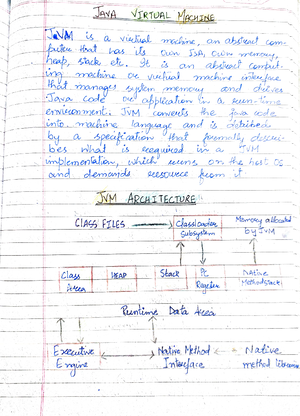 JAVA VIRTUAL MACHINE
JVM is a virtual machine, an abstract com-
puter that has its own ISA, own memory,
heap, stack etc. It is an abstract comput-
ing machine or virtual machine interface
that manages system memory and drives
Java code or application in a run-time
environment. JVM converts the java code
into machine language and is detailed
by a specification that formally descri-
bes what is required in a JVM
implementation, which runs on the host OS
and demands resource from it
JVM ARCHITECTURE
CLASS FILES Classloader Memory allocated
Subsystem by JVM
Class HEAP Stack PC Native
Area Register Method Stack
Runtime Data Area
Executive Native Method Native
Engine Interface method libraries